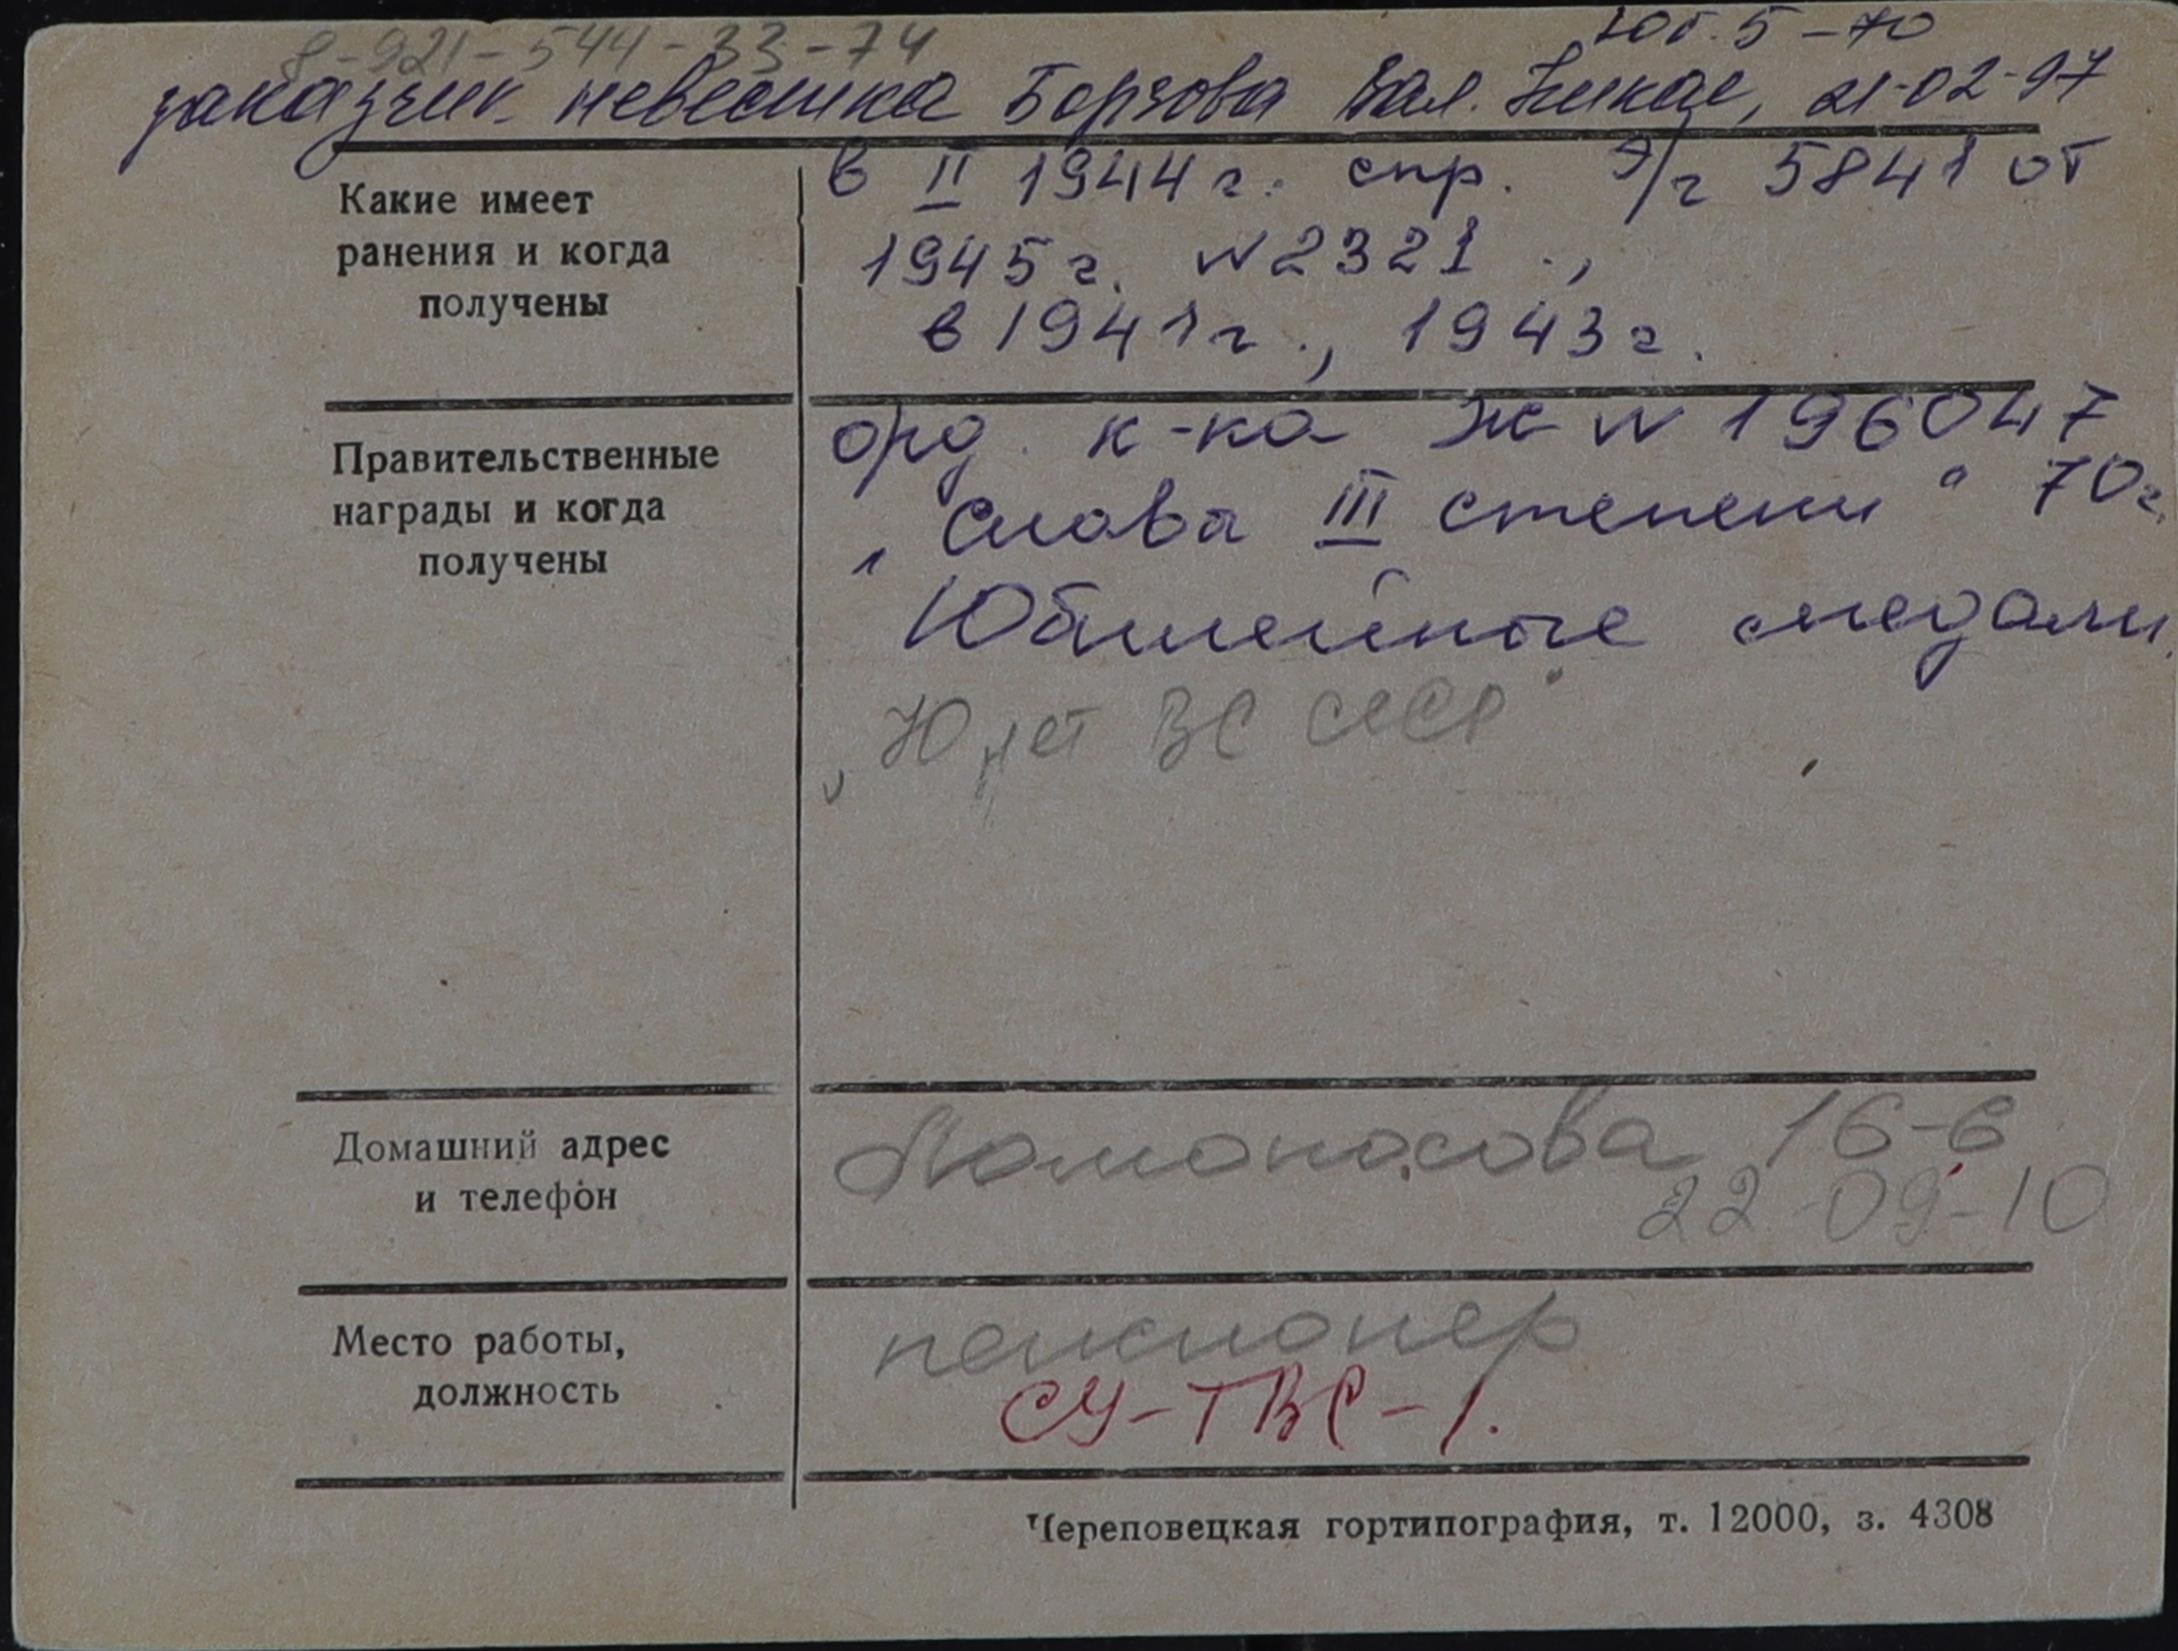 8-921-544-33-74
Юб. 5-70
заказчик невестка Борзова Вал. Никол, 21-02-97
Какие имеет
ранения и когда
получены
в II 1944 г. спр. э/г 5841 от
1945 г. N 2321.,
в 1941 г., 1943 г.
Правительственные
награды и когда
получены
орд. к-ка Ж N 196047
„Слава III степени" 70 г.
Юбилейные медали.
„70 лет ВС СССР"
Домашний адрес
и телефон
Ломоносова 16-6
22-09-10
Место работы,
должность
пенсионер
СУ-ТВС-1.
Череповецкая гортипография, т. 12000, з. 4308